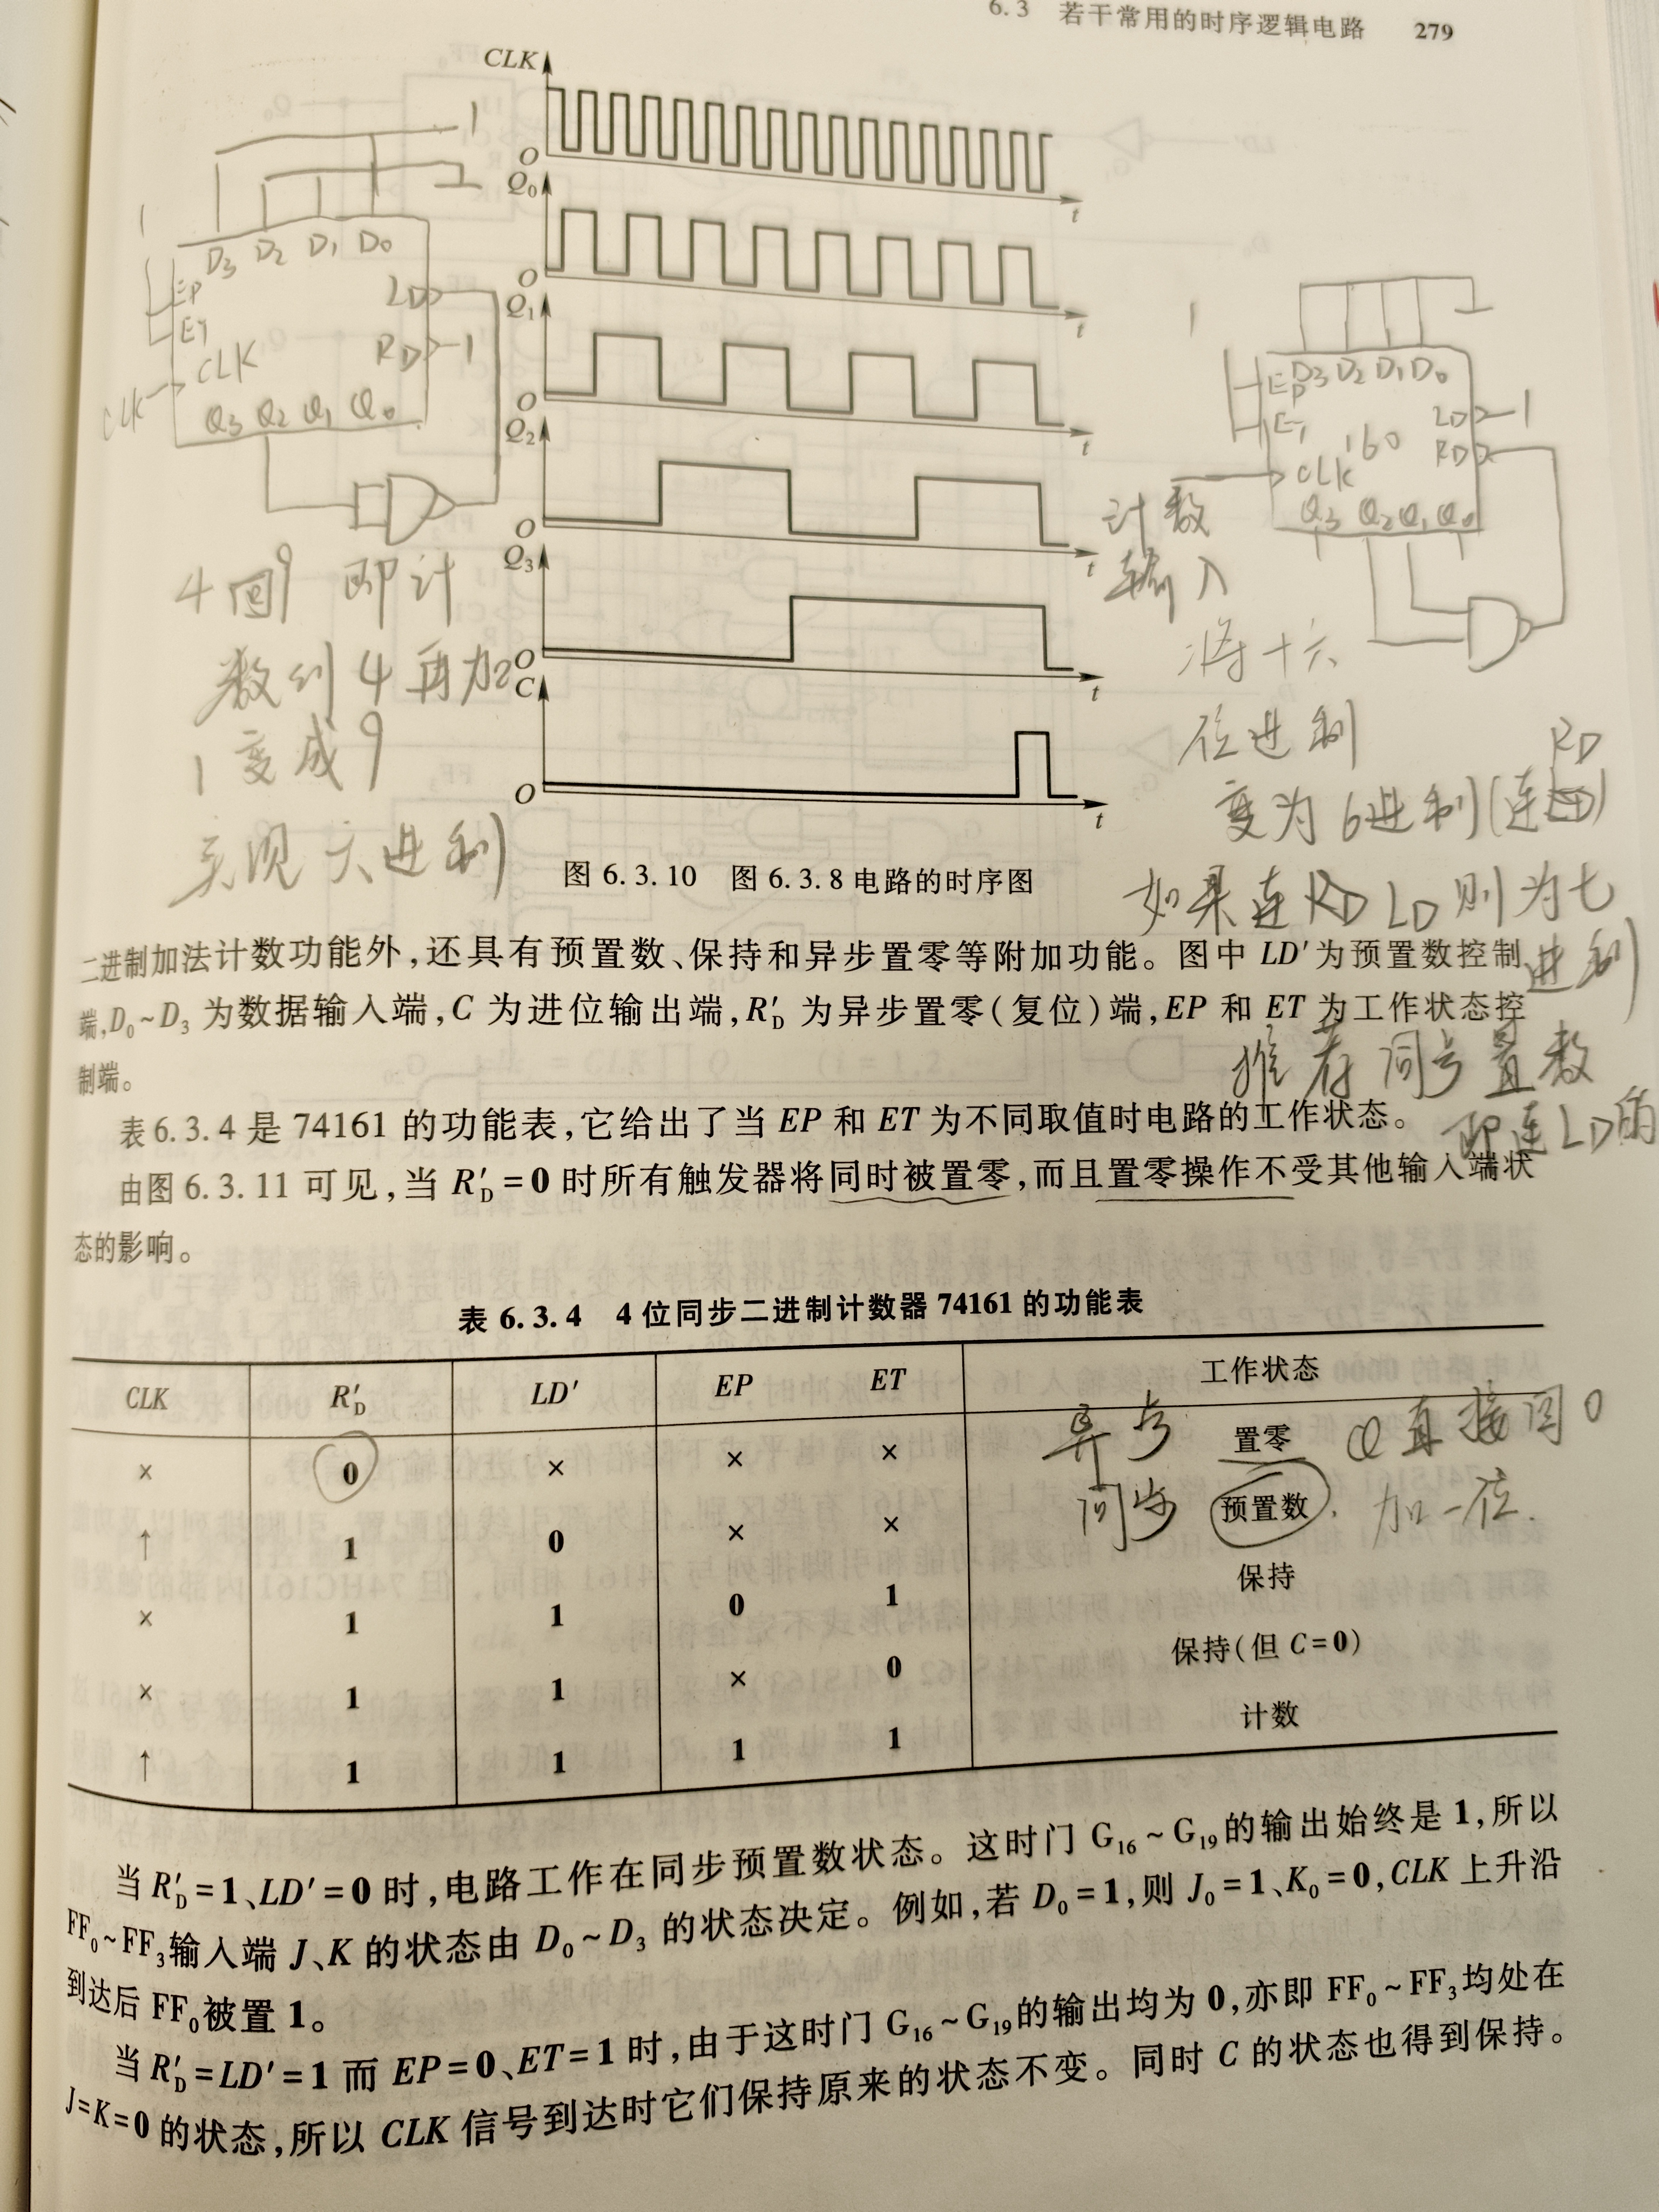 6.3 若干常用的时序逻辑电路 279
CLK
O
t
Q₀
O
t
Q₁
O
t
Q₂
O
t
Q₃
O
t
C
O
t
1
1
D3 D2 D1 D0
EP
ET
LD
RD 1
CLK CLK
Q3 Q2 Q1 Q0
4回9 即计
数到4再加
1变成9
实现六进制
1
EP D3 D2 D1 D0
ET
160
LD 1
RD
CLK
Q3 Q2 Q1 Q0
计数
输入
将十六
位进制
RD
变为6进制(连
如果连 LD 则为七
进制
推荐同步置数
即连LD的
图 6.3.10 图 6.3.8 电路的时序图
二进制加法计数功能外,还具有预置数、保持和异步置零等附加功能。图中 LD′为预置数控制
端,D₀~D₃ 为数据输入端,C 为进位输出端,R′D 为异步置零(复位)端,EP 和 ET 为工作状态控
制端。
表 6.3.4 是 74161 的功能表,它给出了当 EP 和 ET 为不同取值时电路的工作状态。
由图 6.3.11 可见,当 R′D=0 时所有触发器将同时被置零,而且置零操作不受其他输入端状
态的影响。
表 6.3.4 4 位同步二进制计数器 74161 的功能表
CLK R′D LD′ EP ET 工作状态
× 0 × × × 异步 置零 Q直接回0
↑ 1 0 × × 同步 预置数 加一位.
× 1 1 0 1 保持
× 1 1 × 0 保持(但 C=0)
↑ 1 1 1 1 计数
当 R′D=1、LD′=0 时,电路工作在同步预置数状态。这时门 G₁₆~G₁₉的输出始终是 1,所以
FF₀~FF₃输入端 J、K 的状态由 D₀~D₃ 的状态决定。例如,若 D₀=1,则 J₀=1、K₀=0,CLK 上升沿
到达后 FF₀被置 1。
当 R′D=LD′=1 而 EP=0、ET=1 时,由于这时门 G₁₆~G₁₉的输出均为 0,亦即 FF₀~FF₃均处在
J=K=0 的状态,所以 CLK 信号到达时它们保持原来的状态不变。同时 C 的状态也得到保持。